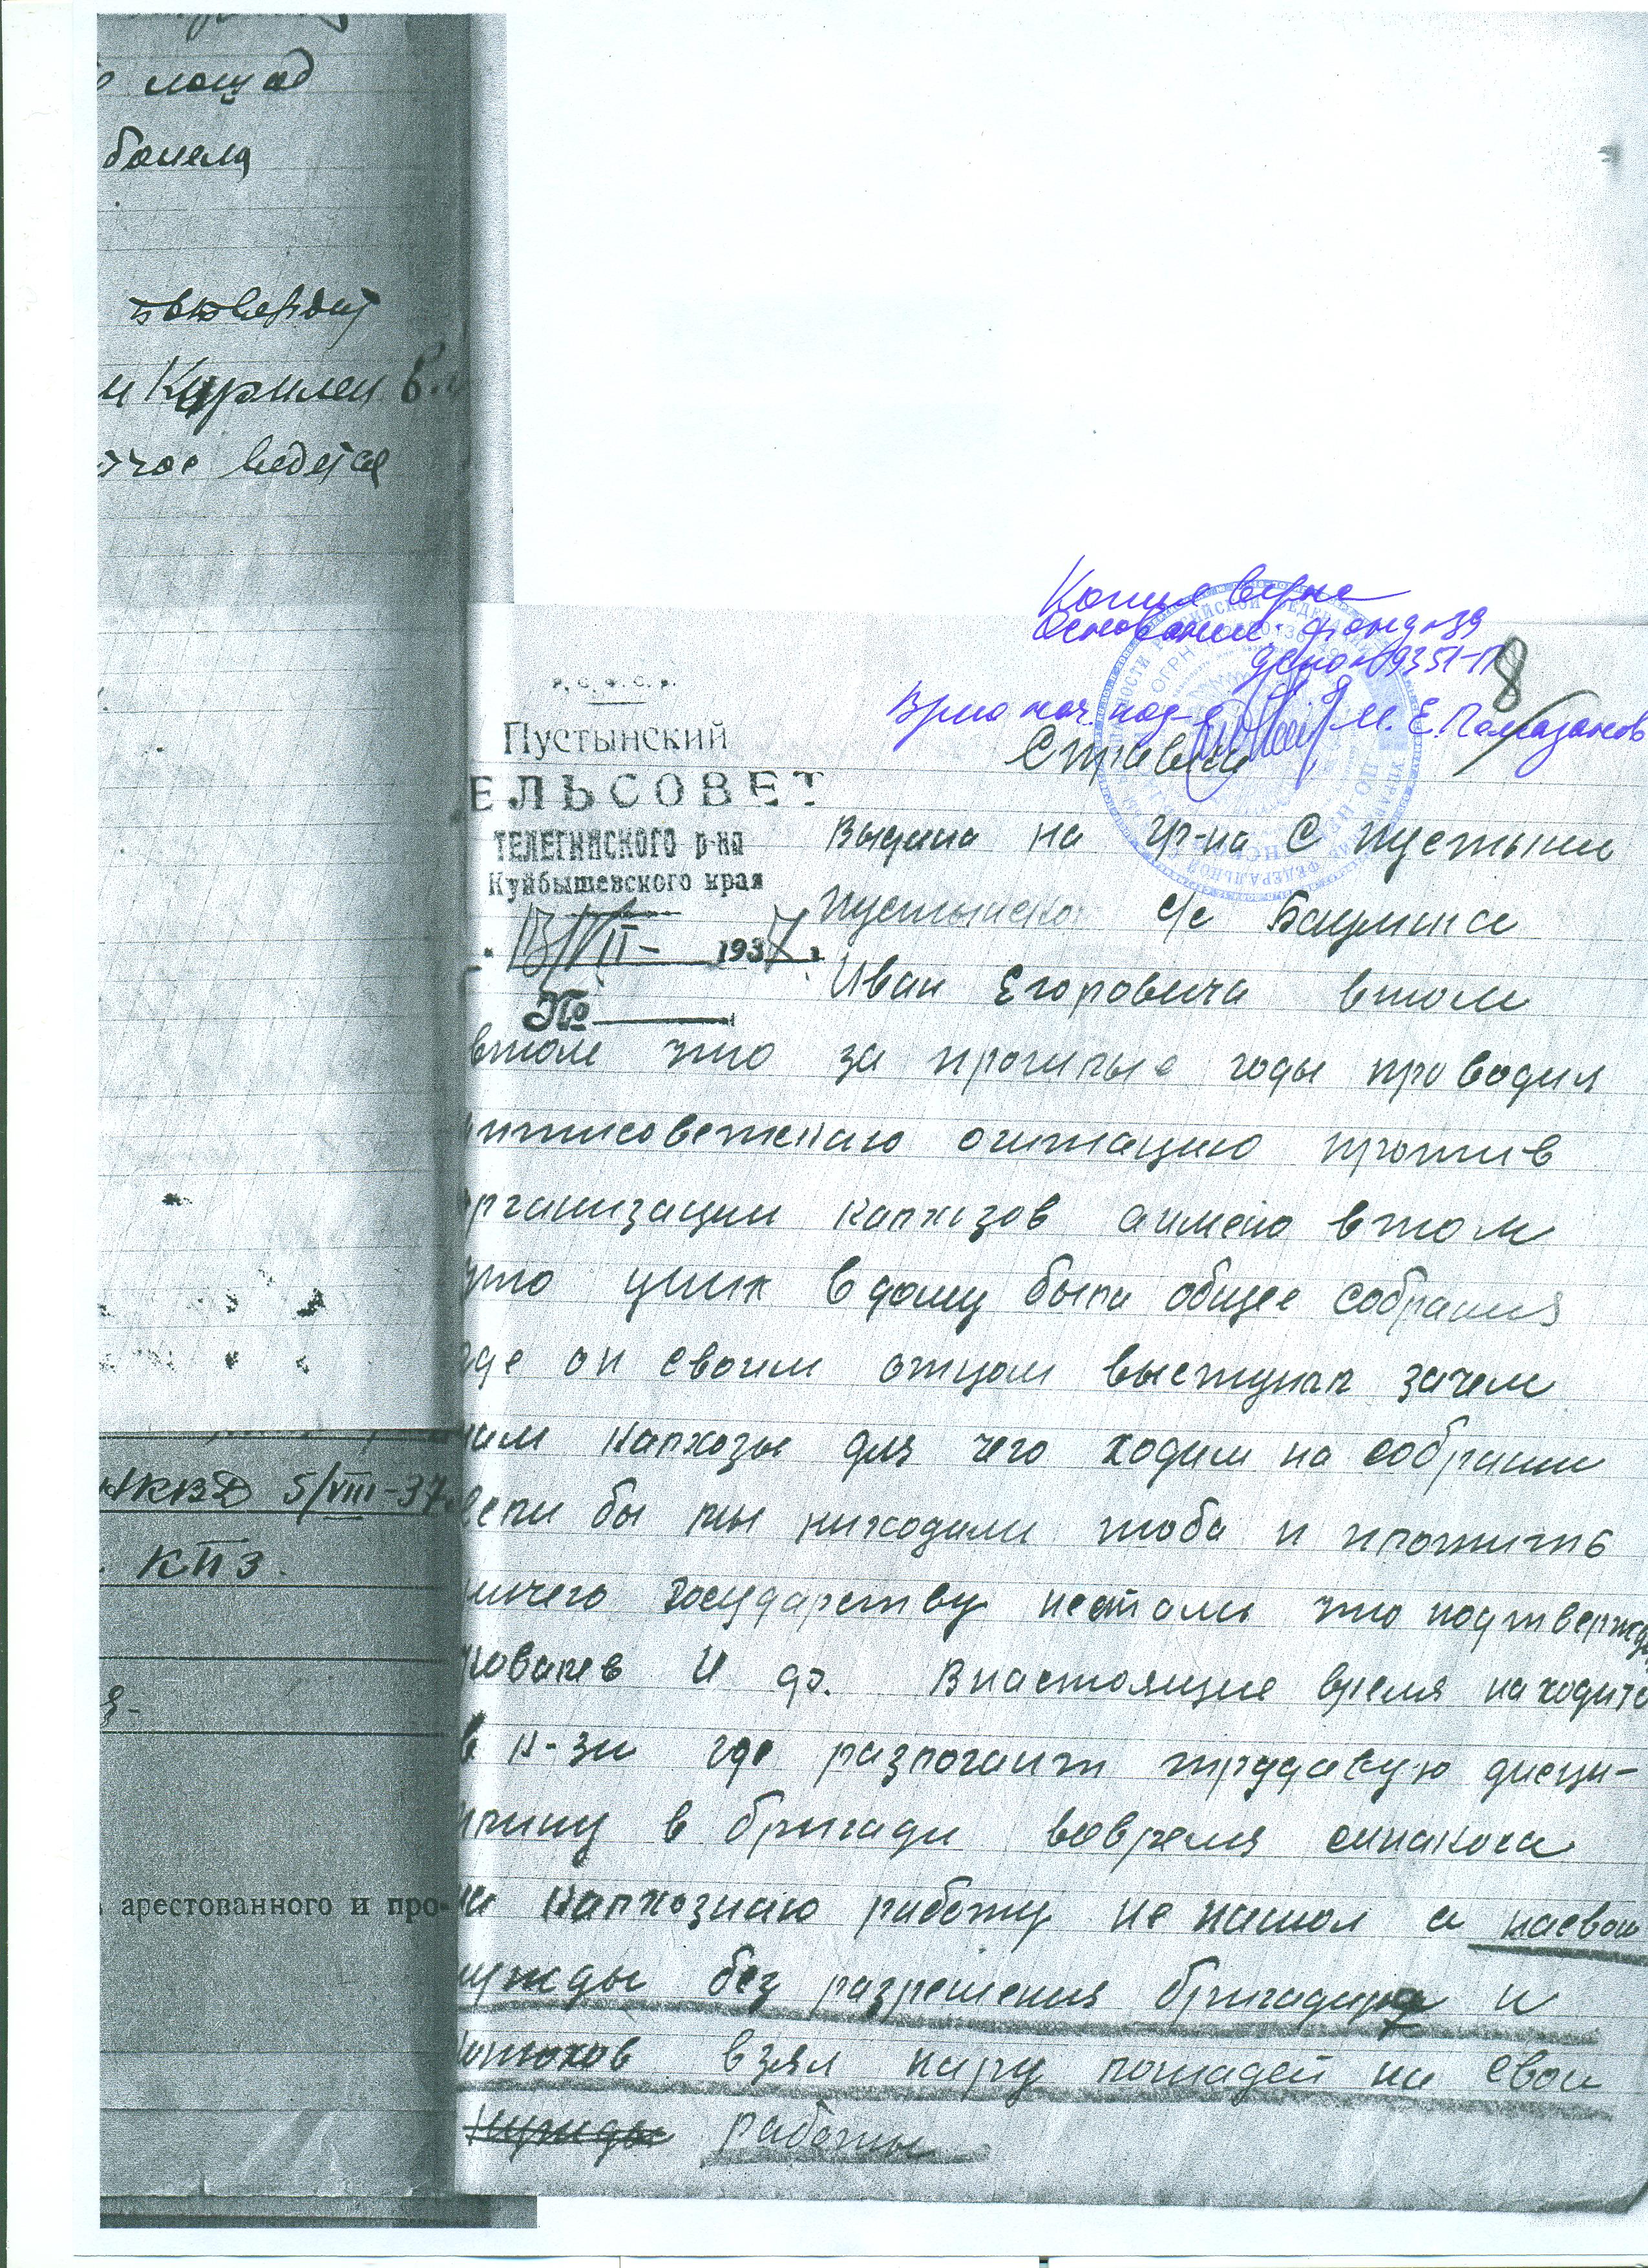 лошад
и Кирилен
ведется
НКВД 5/VIII-37
КПЗ.
арестованного и про-
Копия верна
Основание: фонд
дело 19351-П
Врио нач. под-я М. Е. Помазанов
8
Р. С. Ф. С. Р.
Пустынский
ЕЛЬСОВЕТ
ТЕЛЕГИНСКОГО р-на
Куйбышевского края
13/VII- 1937 г.
№
Справка
Выдана на гр-на С Пустыни
Пустынско с/с Баулина
Иван Егоровича втом
втом что за прошлые годы проводил
нтисоветскаю огитацию против
рганизации калхозов аимено втом
что уних вдому были общее собрания
где он своим отцом выступал зачем
ним калхозы для чего ходим на собрании
если бы мы ниходили тоба и платить
ничего государству нестали что подтвержда
Ковалев И др. Внастоящие время находитс
в к-зи где разлогаит трудавую дисци-
плину в бригади вовремя синакоса
на калхознаю работу не пашол а насвои
нужды без разрешения бригадира и
конюхов взял пару лошадей на свои
нужды работы